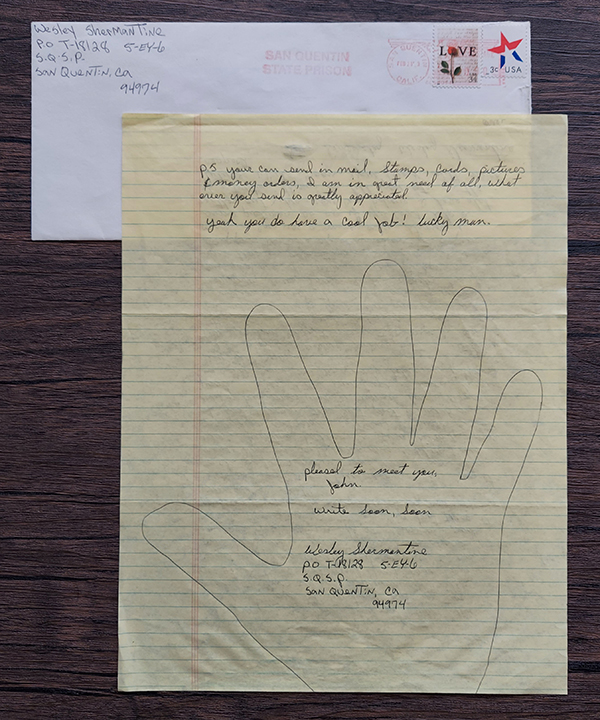 Wesley Shermantine
P.O T-18128 5-EY-6
S.Q.S.P.
San Quentin, Ca
94974
SAN QUENTIN
STATE PRISON
LOVE
34
3c USA
P.S your can send in mail, Stamps, Cards, pictures
& money orders, I am in great need of all, what
ever you send is greatly appreciated.
yeah you do have a cool job! Lucky man.
pleased to meet you,
John.
write soon, soon
Wesley Shermantine
P.O T-18128 5-EY-6
S.Q.S.P.
San Quentin, Ca
94974